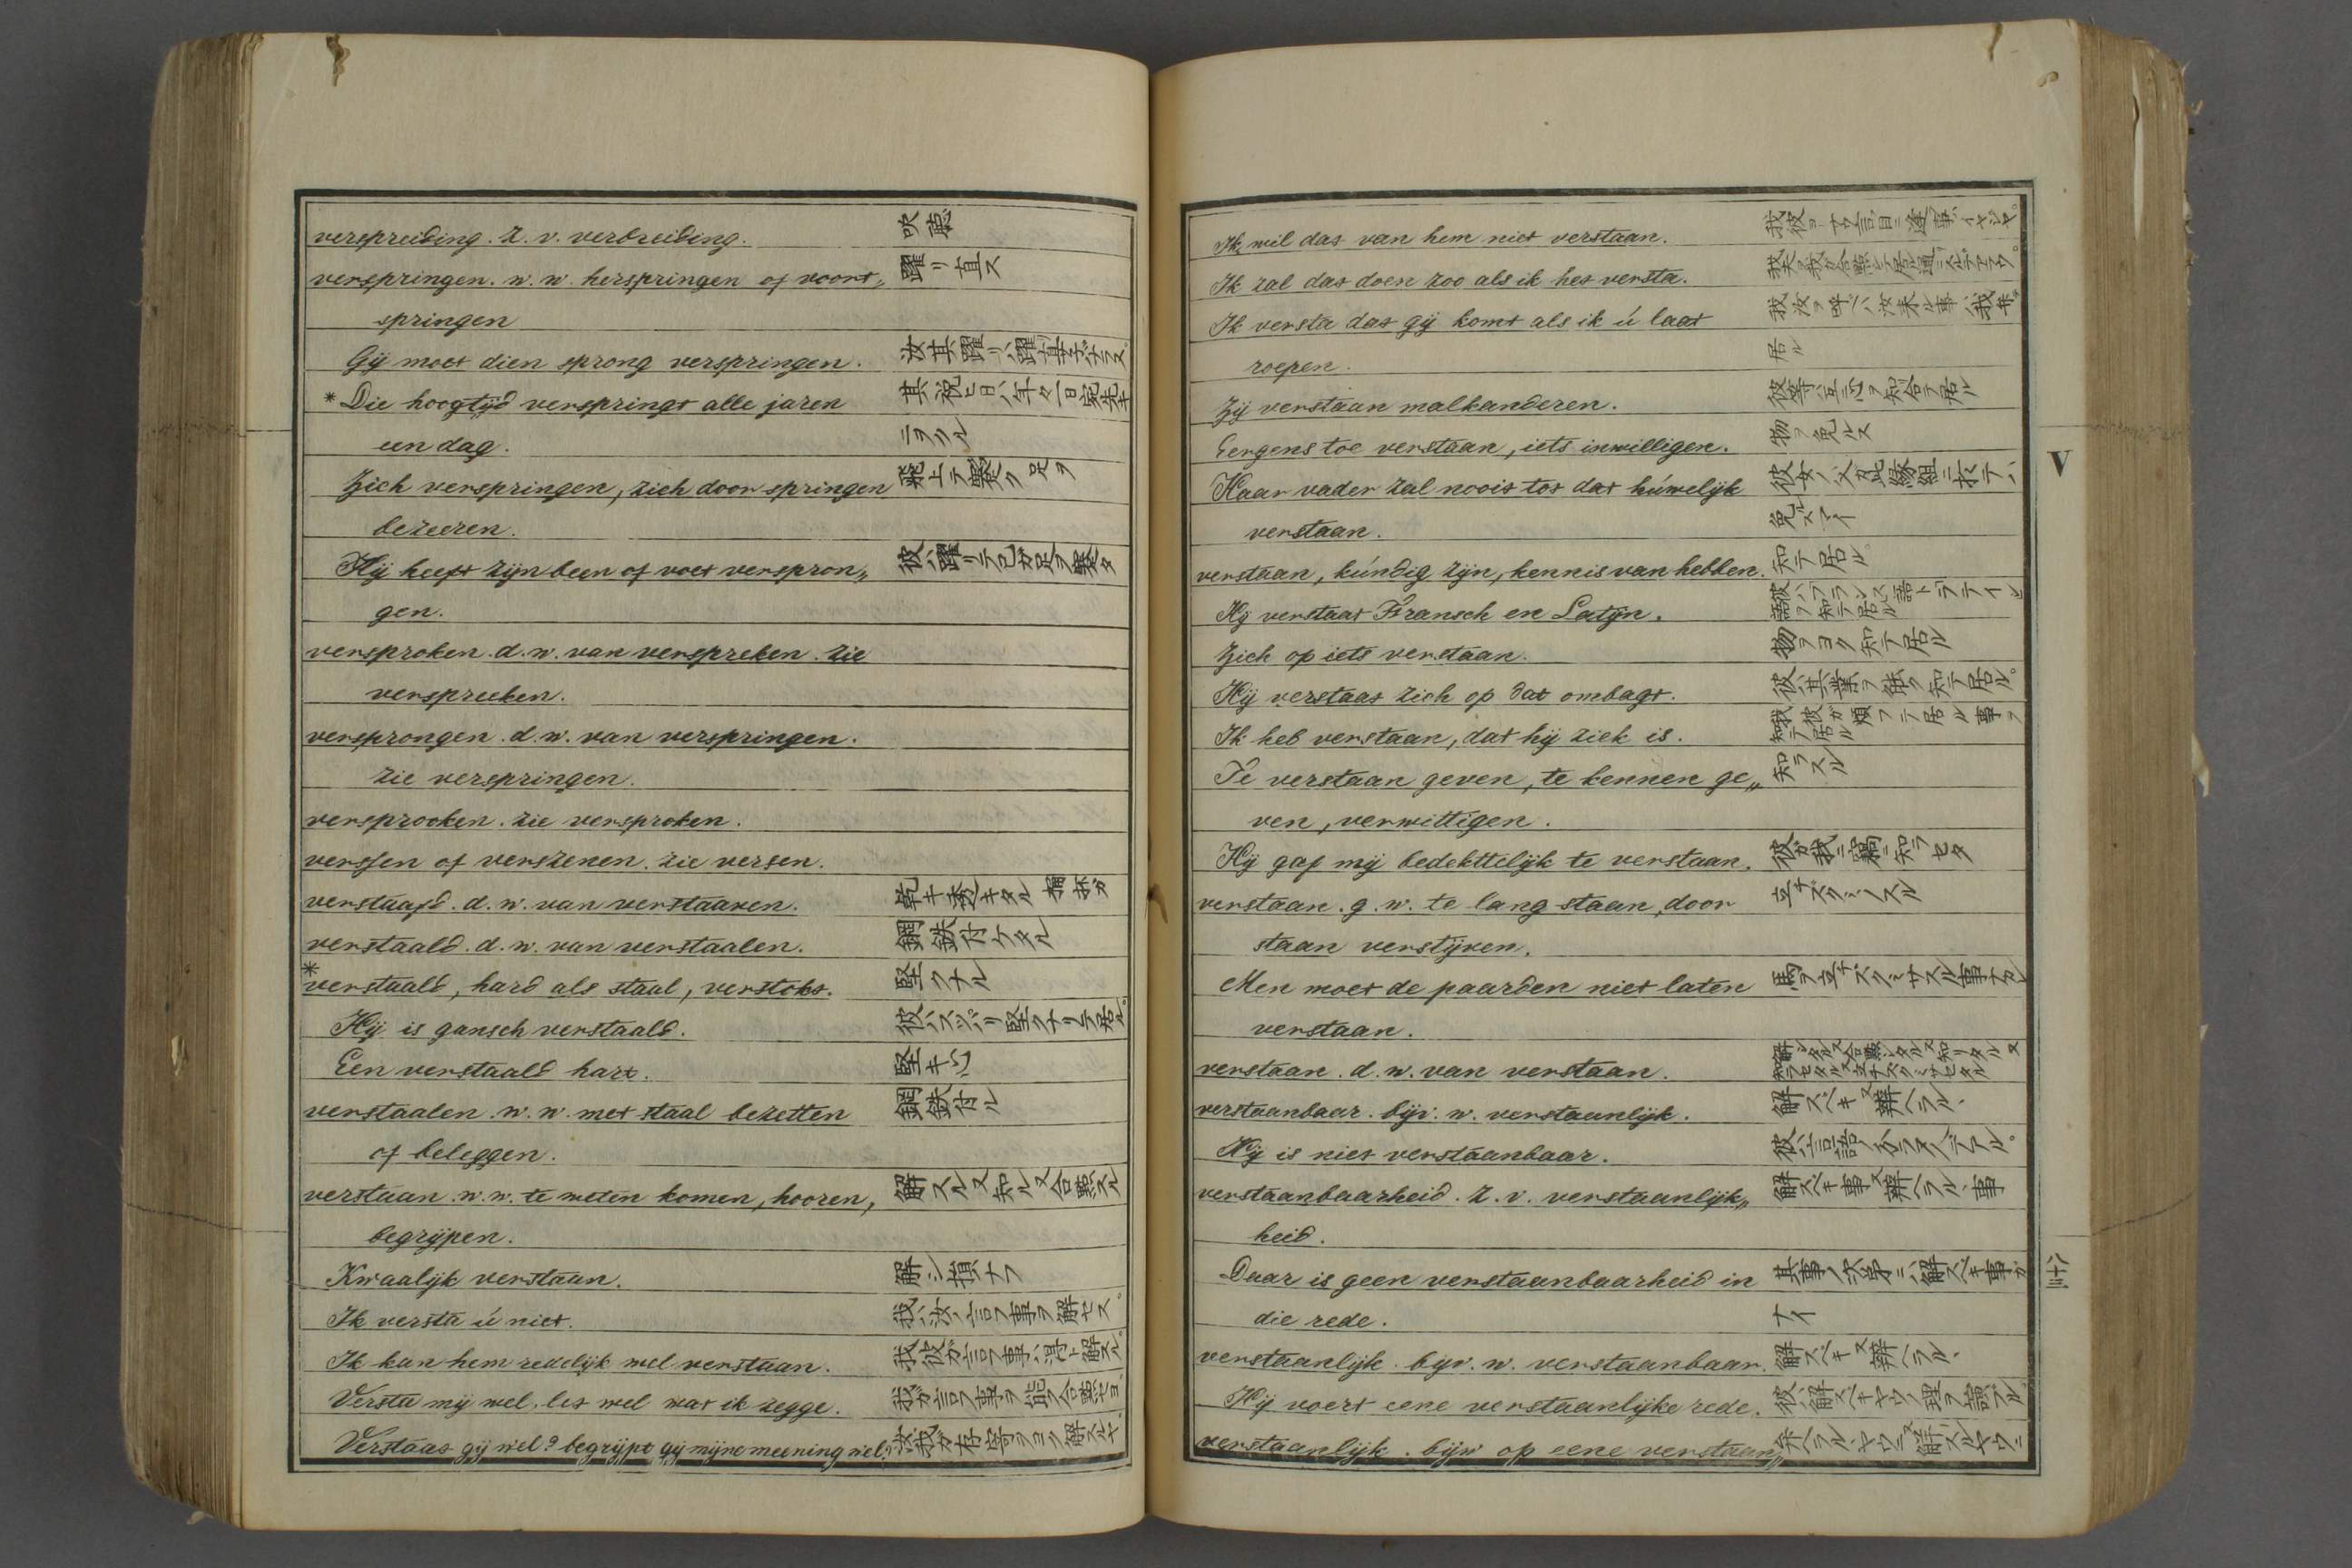 verspreiding. z. v. verbreiding.
verspringen. w. w. herspringen of voort„ 躍リ直ス
springen
Gij moet dien sprong verspringen. 汝其躍リハ躍リ直サ子ハナラヌ。
* Die hoogtijd verspringt alle jaren 其祝ヒ日ハ年々一日宛先キ
een dag. ニヲクル
Zich verspringen, zich door springen 飛上テ蹇ク足ヲ
bezeeren.
Hij heeft zijn been of voet verspron„ 彼ハ躍リテ己ガ足ヲ蹇タ
gen.
versproken. d. w. van verspreken. zie
verspreeken.
versprongen. d. w. van verspringen.
zie verspringen.
versprooken. zie versproken.
verssen of verszenen. zie versen.
verstaafd. d. w. van verstaaven.
verstaald. d. w. van verstaalen. 鋼鉄付ケタル
* verstaald, hard als staal, verstokt. 堅クナル
Hij is gansch verstaald. 彼ハスッハリ堅クナリテ居ル。
Een verstaald hart. 堅キ心
verstaalen. w. w. met staal bezetten 鋼鉄付ル
of beleggen.
verstaan. w. w. te weten komen, hooren, 解スル又知ル又合點スル
begrijpen.
Kwaalijk verstaan. 解シ損ナフ
Ik versta ú niet. 我ハ汝ノ言フ事ヲ解セヌ。
Ik kan hem redelijk wel verstaan. 我彼ガ言フ事ハ得ト解スル。
Versta mij wel, let wel wat ik zegge. 我ガ言フ事ヲ能ク合點セヨ。
Verstaat gij wel? begrijpt gij mijne meening wel? 汝我ガ存寄ヲヨク解スルヤ。
Ik wil dat van hem niet verstaan.
Ik zal dat doen zoo als ik het versta.
Ik versta dat gij komt als ik ú laat 我汝ヲ呼ベハ汝来ル事ハ我弁
roepen. 居ル
Zij verstaan malkanderen. 彼等ハ互ニ心ヲ知合テ居ル
Eergens toe verstaan, iets inwilligen. 物ヲ免ルス
Haar vader zal nooit tot dat húwelijk 彼女ノ父ハ此縁組ニ於テハ
verstaan. 免ルスマイ
verstaan, kúndig zijn, kennis van hebben. 知テ居ル。
Hij verstaat Fransch en Latijn. 彼ハフランス語トラテイン
語ヲ知テ居ル
Zich op iets verstaan. 物ヲヨク知テ居ル
Hij verstaat zich op dat ombagt. 彼ハ其業ヲ能ク知テ居ル。
Ik heb verstaan, dat hij ziek is. 我彼ガ煩フテ居ル事ヲ
知テ居ル
Te verstaan geven, te kennen ge„ 知ラスル
ven, verwittigen.
Hij gaf mij bedekttelijk te verstaan. 彼ガ我ニ竊ニ知ラセタ
verstaan. g. w. te lang staan, door 立チスクミスル
staan verstijven.
Men moet de paarden niet laten 馬ヲ立チスクミサスル事ナカレ
verstaan.
verstaan. d. w. van verstaan. 解シタル又合點シタル又知リタル又
知ラセタル又立チスクミサセタル
verstaanbaar. bijv. w. verstaanlijk. 解スベキ又辨ヘラルヽ
Hij is niet verstaanbaar.
verstaanbaarheid. z. v. verstaanlijk„ 解スベキ事又辨ヘラルヽ事
heid.
Daar is geen verstaanbaarheid in 其事ノ次第ニハ解スベキ事ガ
die rede. ナイ
verstaanlijk. bijv. w. verstaanbaar. 解スベキ又辨ヘラルヽ
Hij voert eene verstaanlijke rede. 彼ハ解スベキヤウノ理ヲ語ル。
verstaanlijk. bijw op eene verstaan„ 弁ヘラルヽヤウニ又解スルヤウニ
V